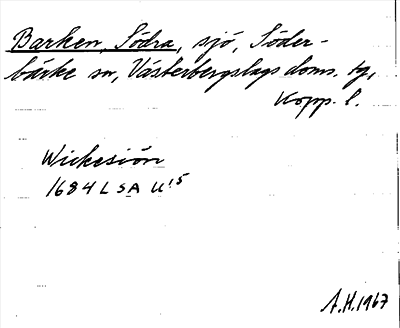 Barken, Södra, sjö, Söder-
bärke sn, Västerbergslags doms. tg,
Kopp. l.
Wickesiön
1684 LSA U:5
A.H. 1967